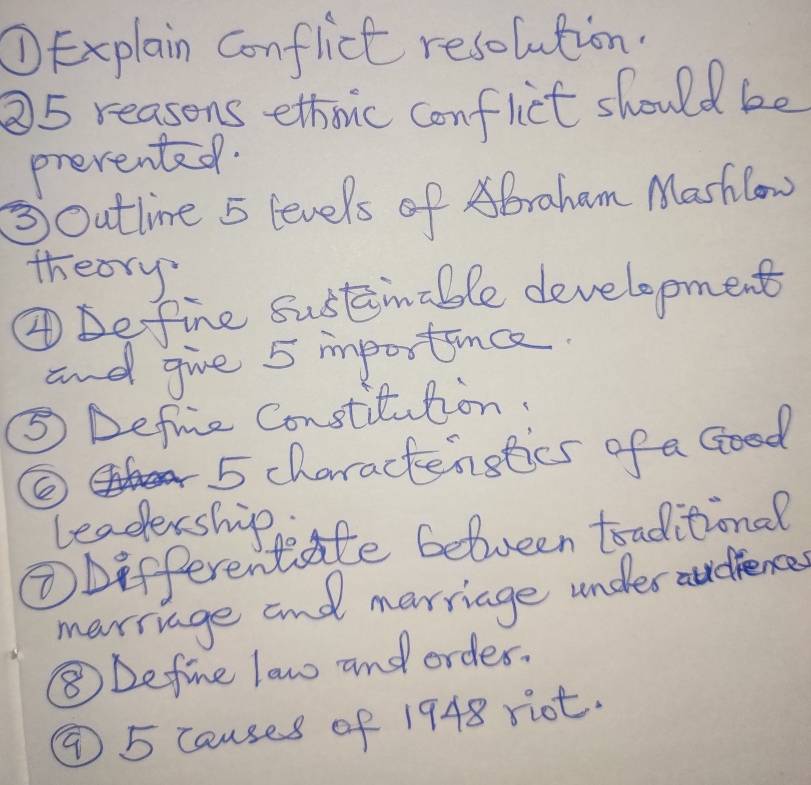 ① Explain Conflict resolution.
② 5 reasons ethnic conflict should be
prevented.
③ Outline 5 levels of Abraham Mashlow
theory.
④ Define sustainable development
and give 5 importance.
⑤ Define Constitution.
⑥ 5 characteristics of a Good
leadership.
⑦ Differentiate between traditional
marriage and marriage under audiences
⑧ Define law and order.
⑨ 5 causes of 1948 riot.